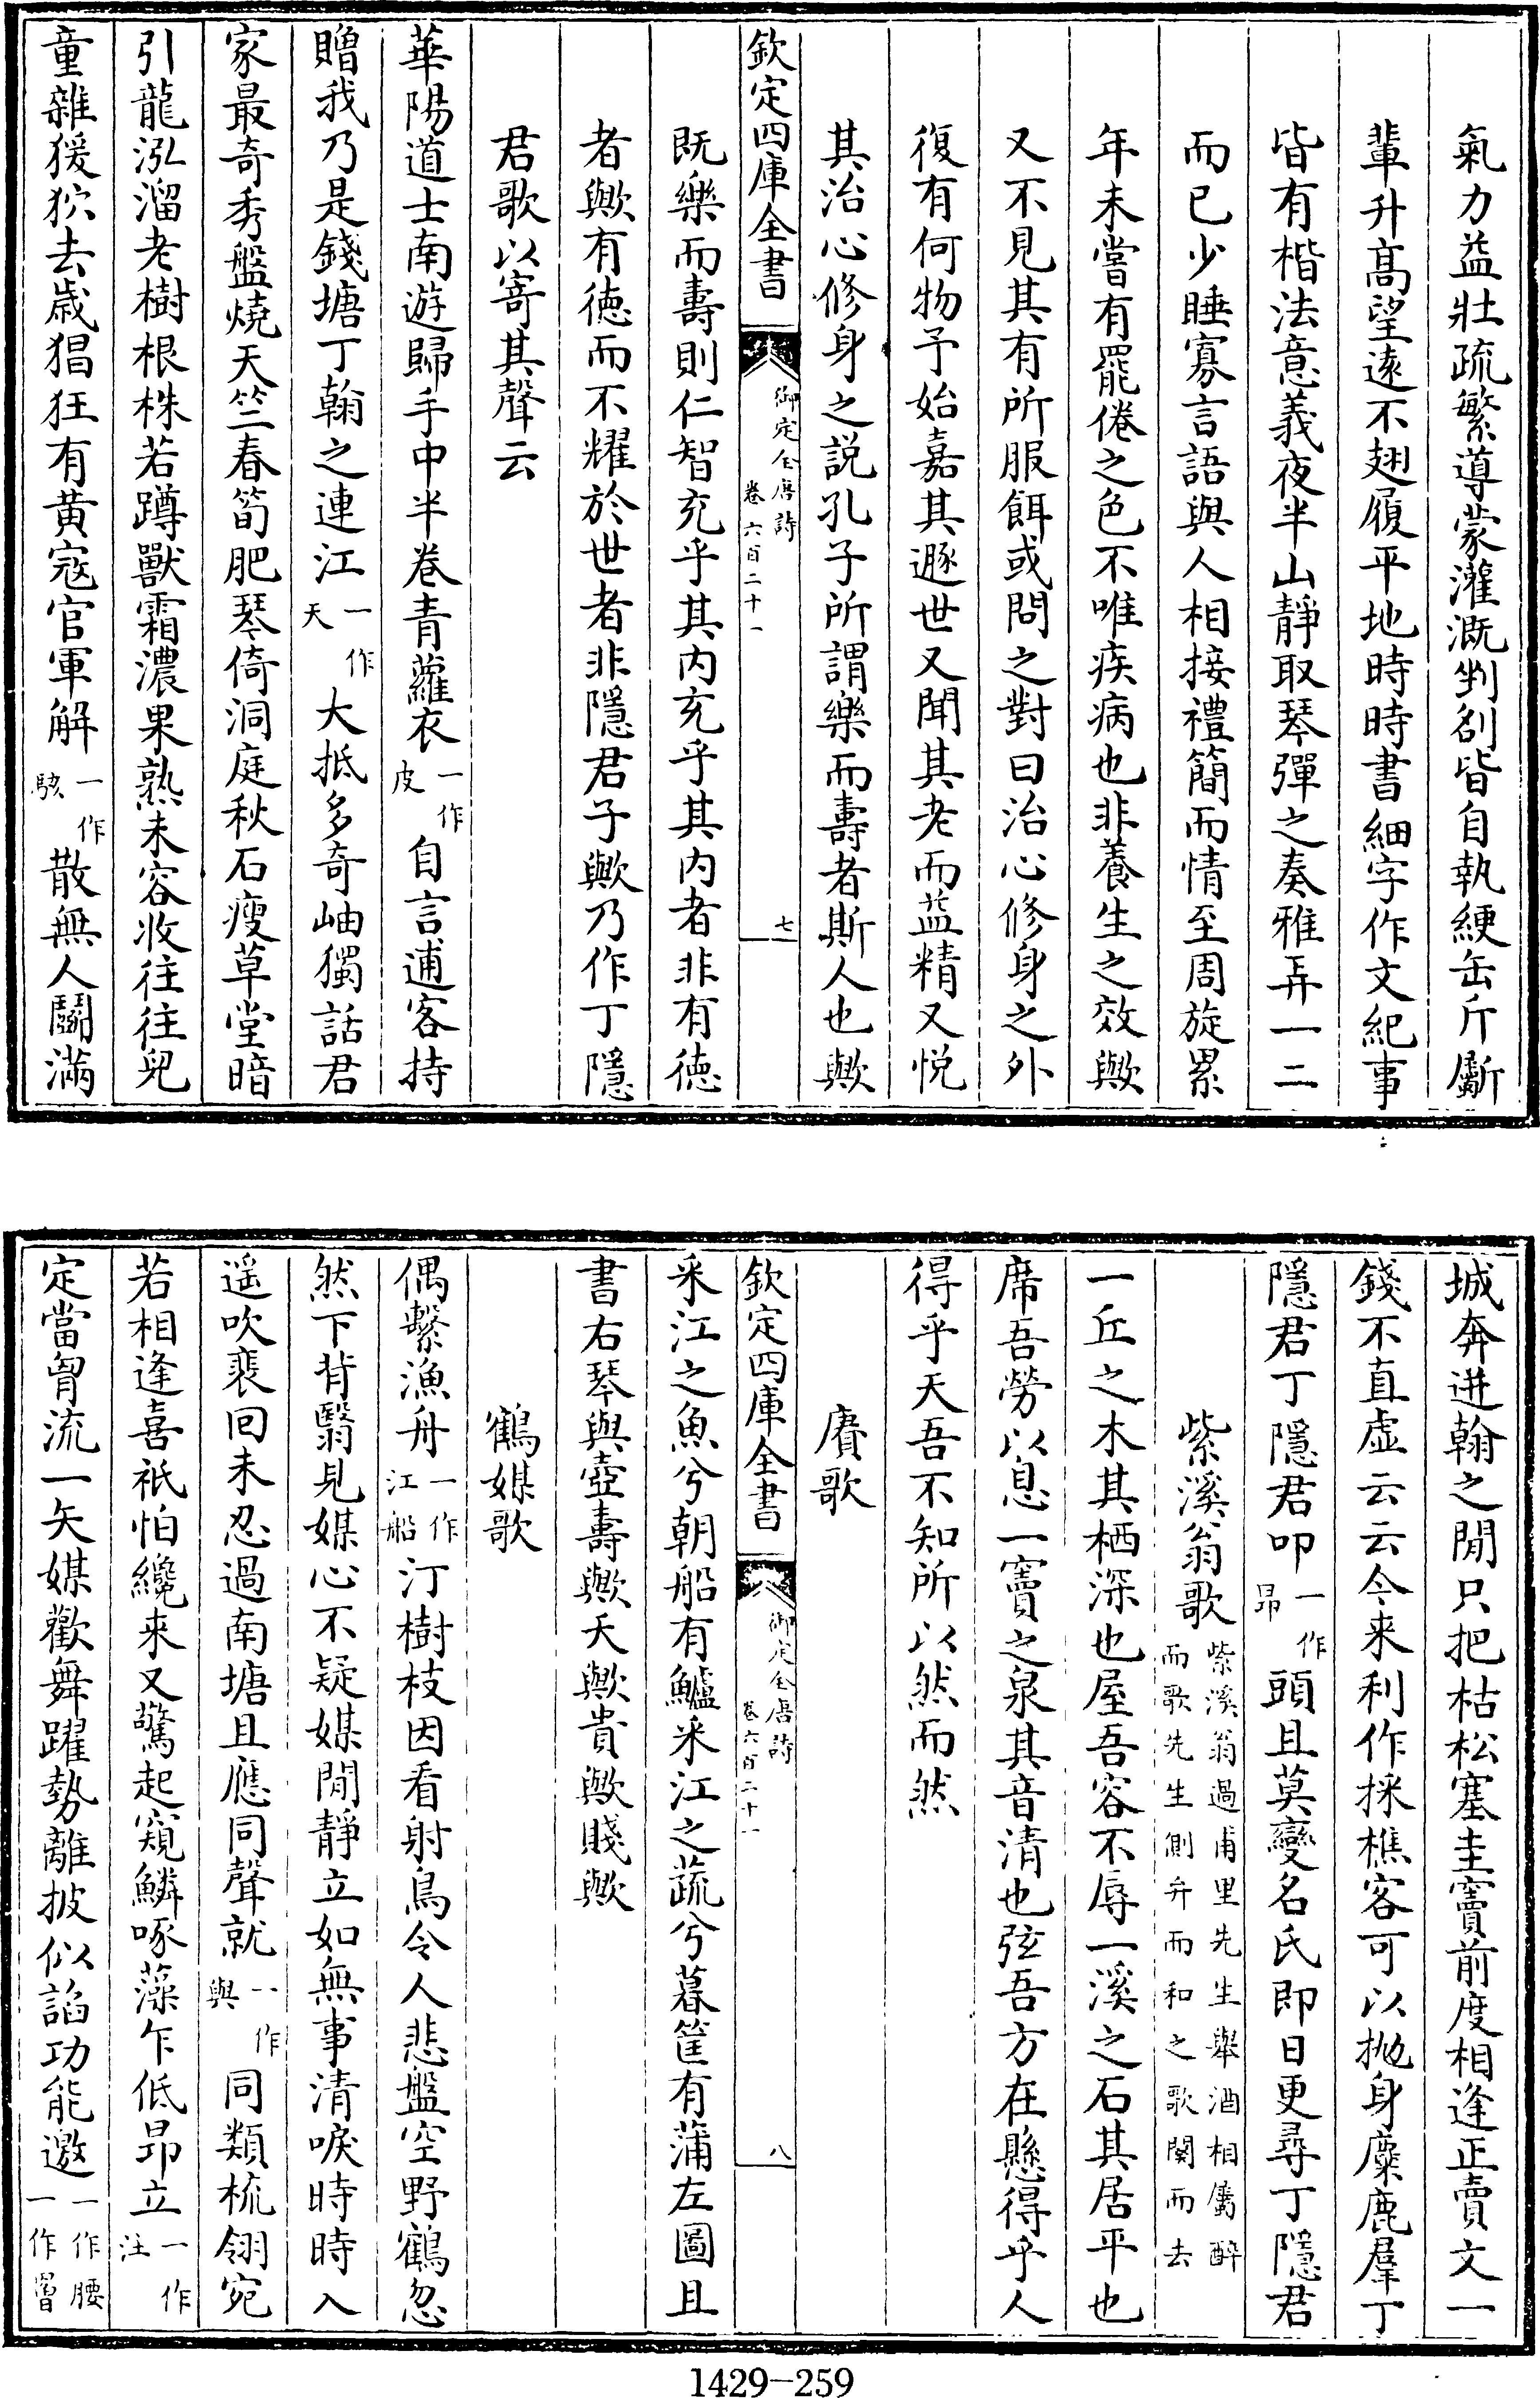 氣力益壯疏繁導蒙灌溉剉剗皆自執綆缶斤斸
輩升髙望逺不翅履平地時時書細字作文紀事
皆有楷法意義夜半山靜取琴彈之奏雅弄一二
而已少睡寡言語與人相接禮簡而情至周旋累
年未嘗有罷倦之色不唯疾病也非養生之效歟
又不見其有所服餌或問之對曰治心修身之外
復有何物予始嘉其遯世又聞其老而益精又悦
其治心修身之説孔子所謂樂而壽者斯人也歟
欽定四庫全書 御定全唐詩 卷六百二十一 七
既樂而壽則仁智充乎其内充乎其内者非有徳
者歟有徳而不耀於世者非隱君子歟乃作丁隱
君歌以寄其聲云
華陽道士南遊歸手中半卷青蘿衣一作皮自言逋客持
贈我乃是錢塘丁翰之連江一作天大抵多奇岫獨話君
家最奇秀盤燒天竺春筍肥琴倚洞庭秋石瘦草堂暗
引龍泓溜老樹根株若蹲獸霜濃果熟未容收往往兒
童雜猨狖去歳猖狂有黄宼官軍解一作駭散無人鬬滿
城奔迸翰之閒只把枯松塞圭竇前度相逢正賣文一
錢不直虚云云今来利作採樵客可以抛身麋鹿羣丁
隱君丁隱君叩一作昻頭且莫變名氏即日更尋丁隱君
紫溪翁歌紫溪翁過甫里先生舉酒相屬醉而歌先生側弁而和之歌闋而去
一丘之木其栖深也屋吾容不辱一溪之石其居平也
席吾勞以息一竇之泉其音清也弦吾方在懸得乎人
得乎天吾不知所以然而然
賡歌
采江之魚兮朝船有鱸采江之蔬兮暮筐有蒲左圖且
書右琴與壺壽歟夭歟貴歟賤歟
鶴媒歌
偶繫漁舟一作江船汀樹枝因看射鳥令人悲盤空野鶴忽
然下背翳見媒心不疑媒閒靜立如無事清唳時時入
遥吹裴回未忍過南塘且應同聲就一作與同類梳翎宛
若相逢喜祇怕纔来又驚起窺鱗啄藻乍低昻立一作注
定當胷流一矢媒歡舞躍勢離披似諂功能邀一作腰一作冒
1429-259